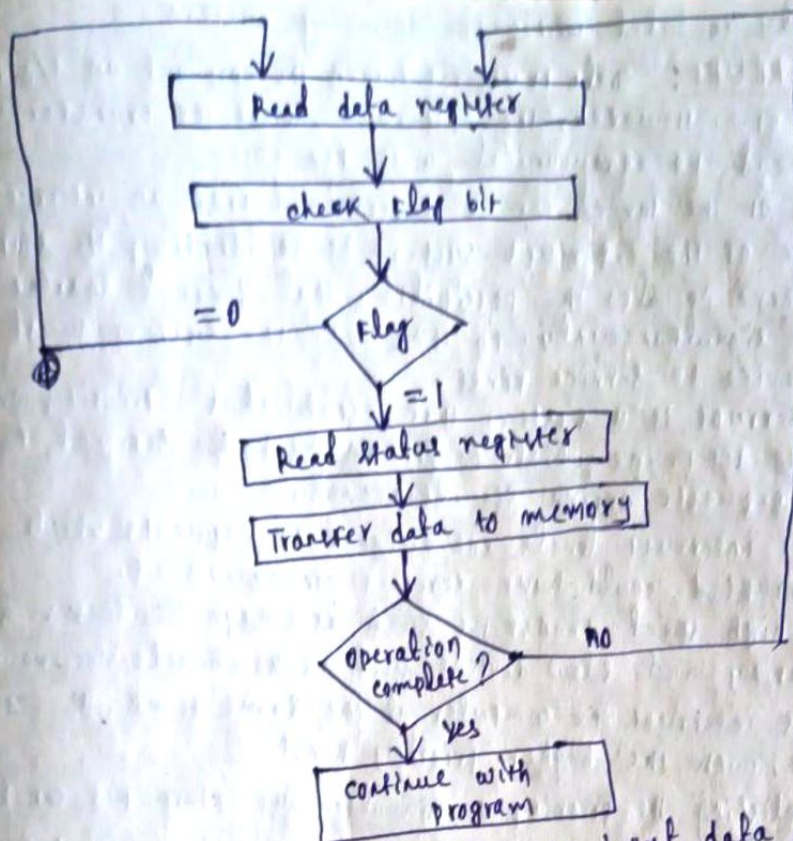 Read data register
check Flag bit
Flag
=0
=1
Read status register
Transfer data to memory
operation
complete?
no
yes
continue with
program
data